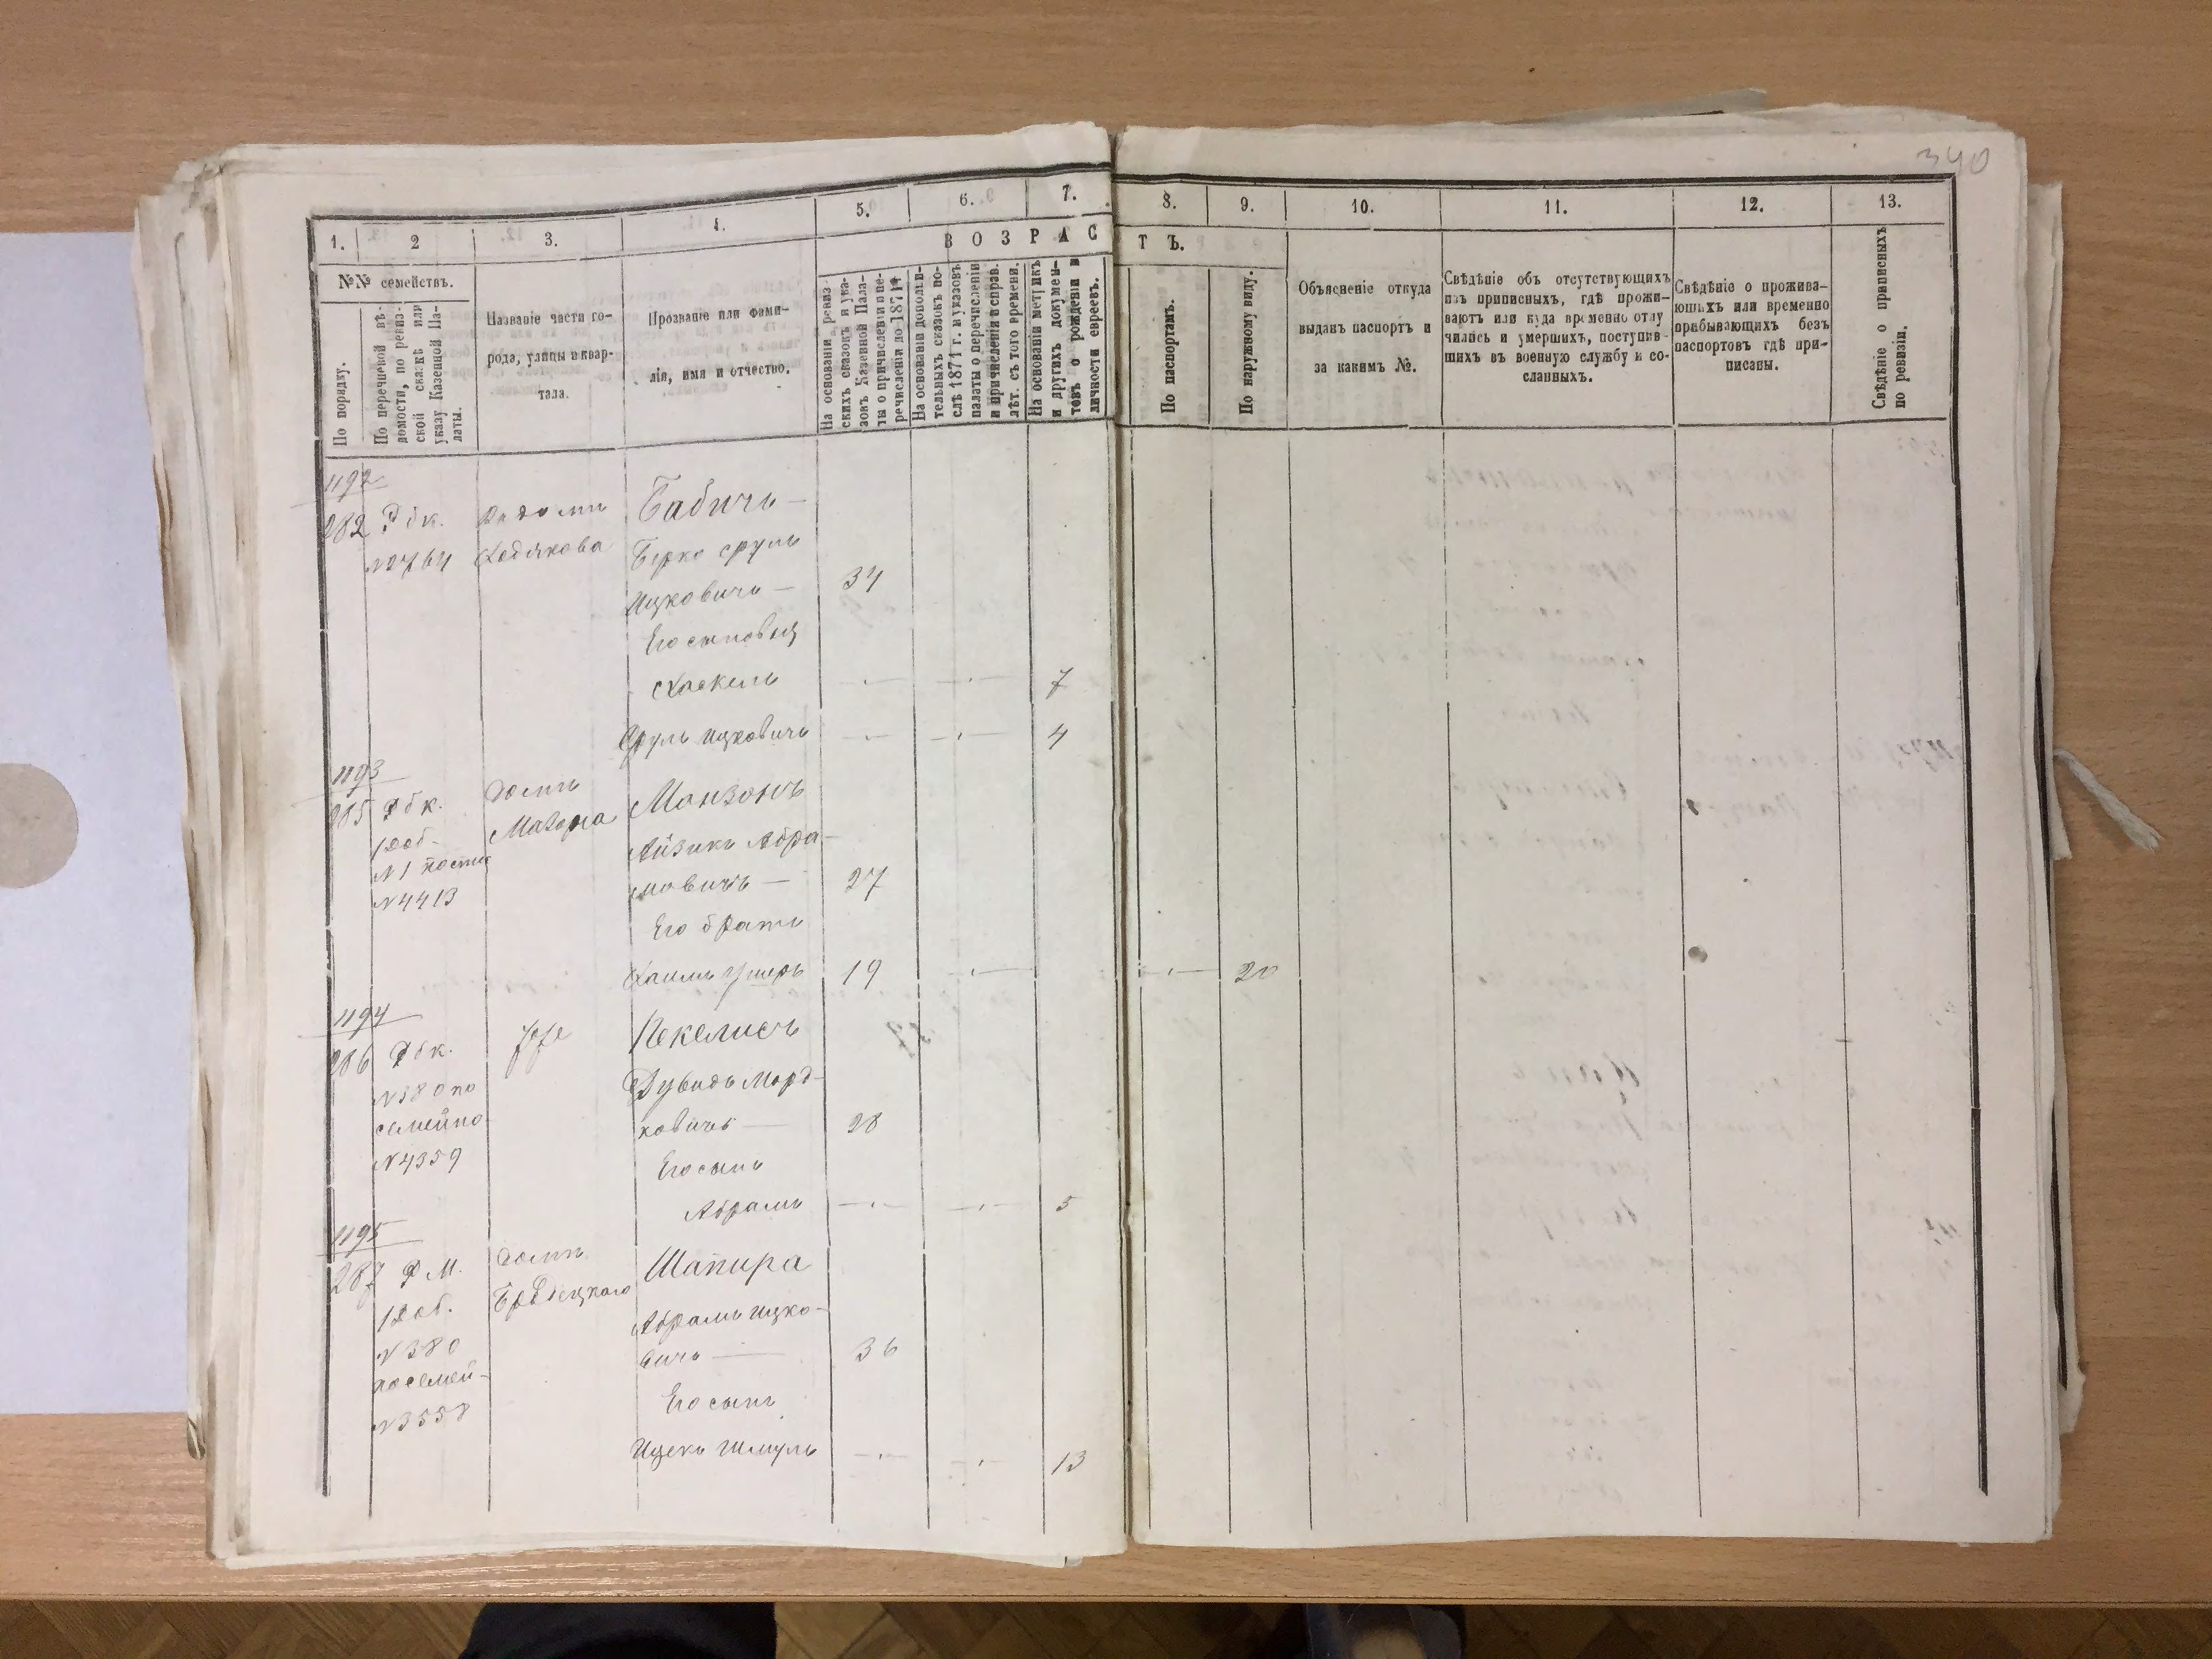 340
1. 2 3. 4. 5. 6. 7. 8. 9. 10. 11. 12. 13.
В О З Р А С Т Ъ.
№№ семействъ.
По порядку.
По перечневой вѣ-
домости, по ревиз-
ской сказкѣ или
указу Казенной Па-
латы.
Названіе части го-
рода, улицы и квар-
тала.
Прозваніе или фами-
лія, имя и отчество.
На основаніи ревиз-
скихъ сказокъ и ука-
зовъ Казенной Пала-
ты о причисленіи и пе-
речисленіи до 1871 г.
На основаніи дополни-
тельныхъ сказокъ по-
слѣ 1871 г. и указовъ
палаты о перечисленіи
и причисленіи и справ.
лѣт. съ того времени.
На основаніи метрикъ
и другихъ докумен-
товъ о рожденіи и
личности евреевъ.
По паспортамъ.
По наружному виду.
Объясненіе откуда
выданъ паспортъ и
за какимъ №.
Свѣдѣніе объ отсутствующихъ
изъ приписныхъ, гдѣ прожи-
ваютъ или куда временно отлу
чились и умершихъ, поступив-
шихъ въ военную службу и со-
сланныхъ.
Свѣдѣніе о прожива-
ющихъ или временно
прибывающихъ безъ
паспортовъ гдѣ при-
писаны.
Свѣдѣніе о приписныхъ
по ревизіи.
1192
282 Рбк. Бабичъ —
№2764 Ходякова Берко Сруль
Ицковичъ — 34
Его сыновья
Хаскель — — 7
Сруль Ицковичъ — — 4
1193
285 Рбк. домъ Манзонъ
1 Доб. Мазора Айзикъ Абра-
№1
мовичъ — 27
№4413
Его братъ
Хаимъ Ушеръ 19 — — 20
1194
286 Рбк. Пекелисъ
№380 по Дувидъ Морд-
семейно- ковичъ — 28
№4359 Его сынъ
Абрамъ — — 5
1195
287 Р М. домъ Шапира
1 Доб. Бродецкаго Абрамъ Ицко-
№380 вичъ — 36
посемей-
№3558 Его сынъ
Ицекъ Шмуль — — 13